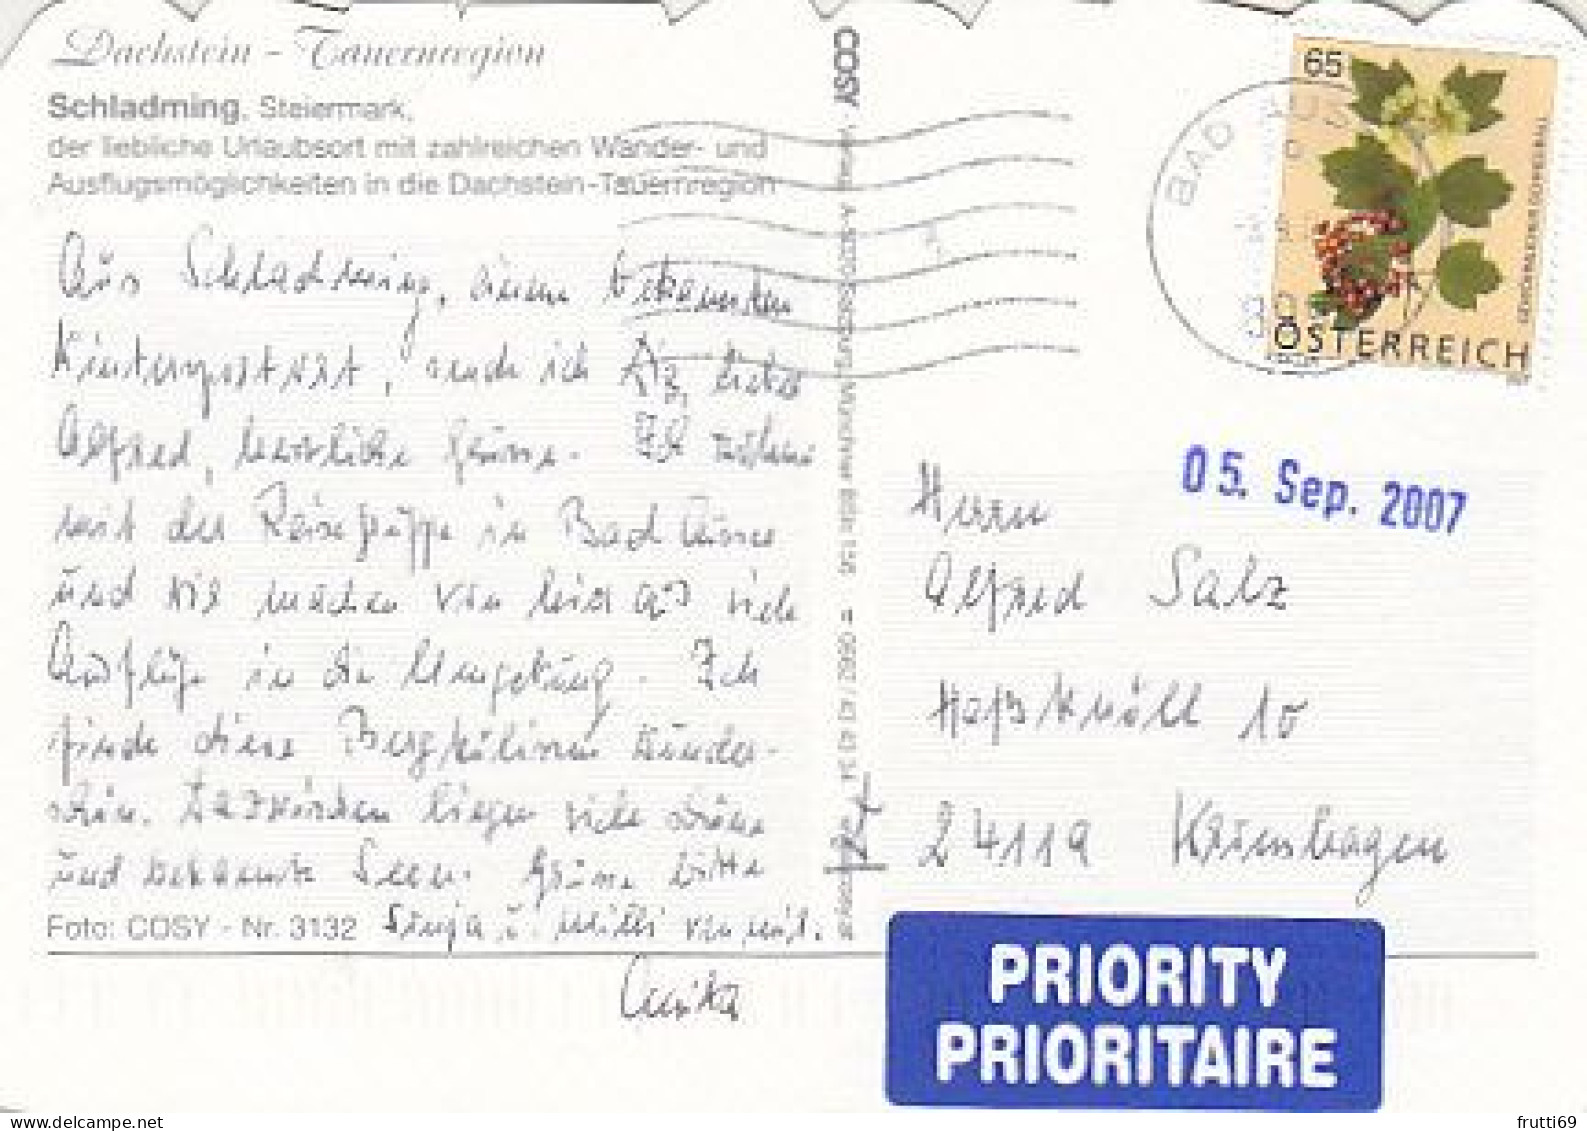 Dachstein - Tauernregion
Schladming, Steiermark,
der liebliche Urlaubsort mit zahlreichen Wander- und
Ausflugsmöglichkeiten in die Dachstein-Tauernregion
Aus Schladming, einem bekannten
Wintersportort, sende ich Dir, lieber
Alfred, herzliche Grüsse. Ich wohne
mit der Reisegruppe in Bad Aussee
und wir machen von hier aus viele
Ausflüge in die Umgebung. Ich
finde diese Bergkulissen wunder-
schön. Dazwischen liegen viele schöne
und bekannte Seen. Grüsse bitte
Foto: COSY - Nr. 3132
u. von mir.
Anita
COSY
65
ÖSTERREICH
BAD AUS
05. Sep. 2007
Herrn
Alfred Salz
Haßknöll 10
24119 Kronshagen
PRIORITY
PRIORITAIRE
www.delcampe.net
frutti69